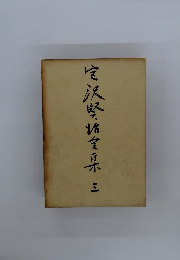 宮沢賢治全集 三